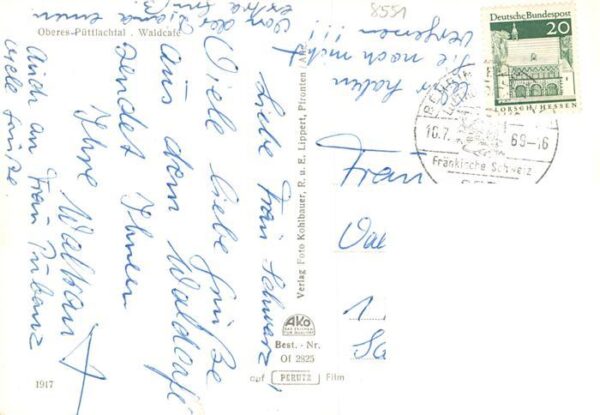 Oberes-Püttlachtal . Waldcafé
Liebe Frau Schwarz,
Viele liebe Grüße
aus dem Waldcafé
sendet Ihnen
Ihre Waltraut
Auch an
Frau
viele Grüße.
von der Diana einen
extra Gruß.
wir haben
Sie noch nicht
vergessen !!!
8551
Deutsche Bundespost
20
LORSCH/HESSEN
16.7. 69-16
Fränkische Schweiz
Frau
1
Verlag Foto Kohlbauer, R. u. E. Lippert, Pfronten
AKO
Best. - Nr.
Of 2825
auf PERUTZ Film
1917